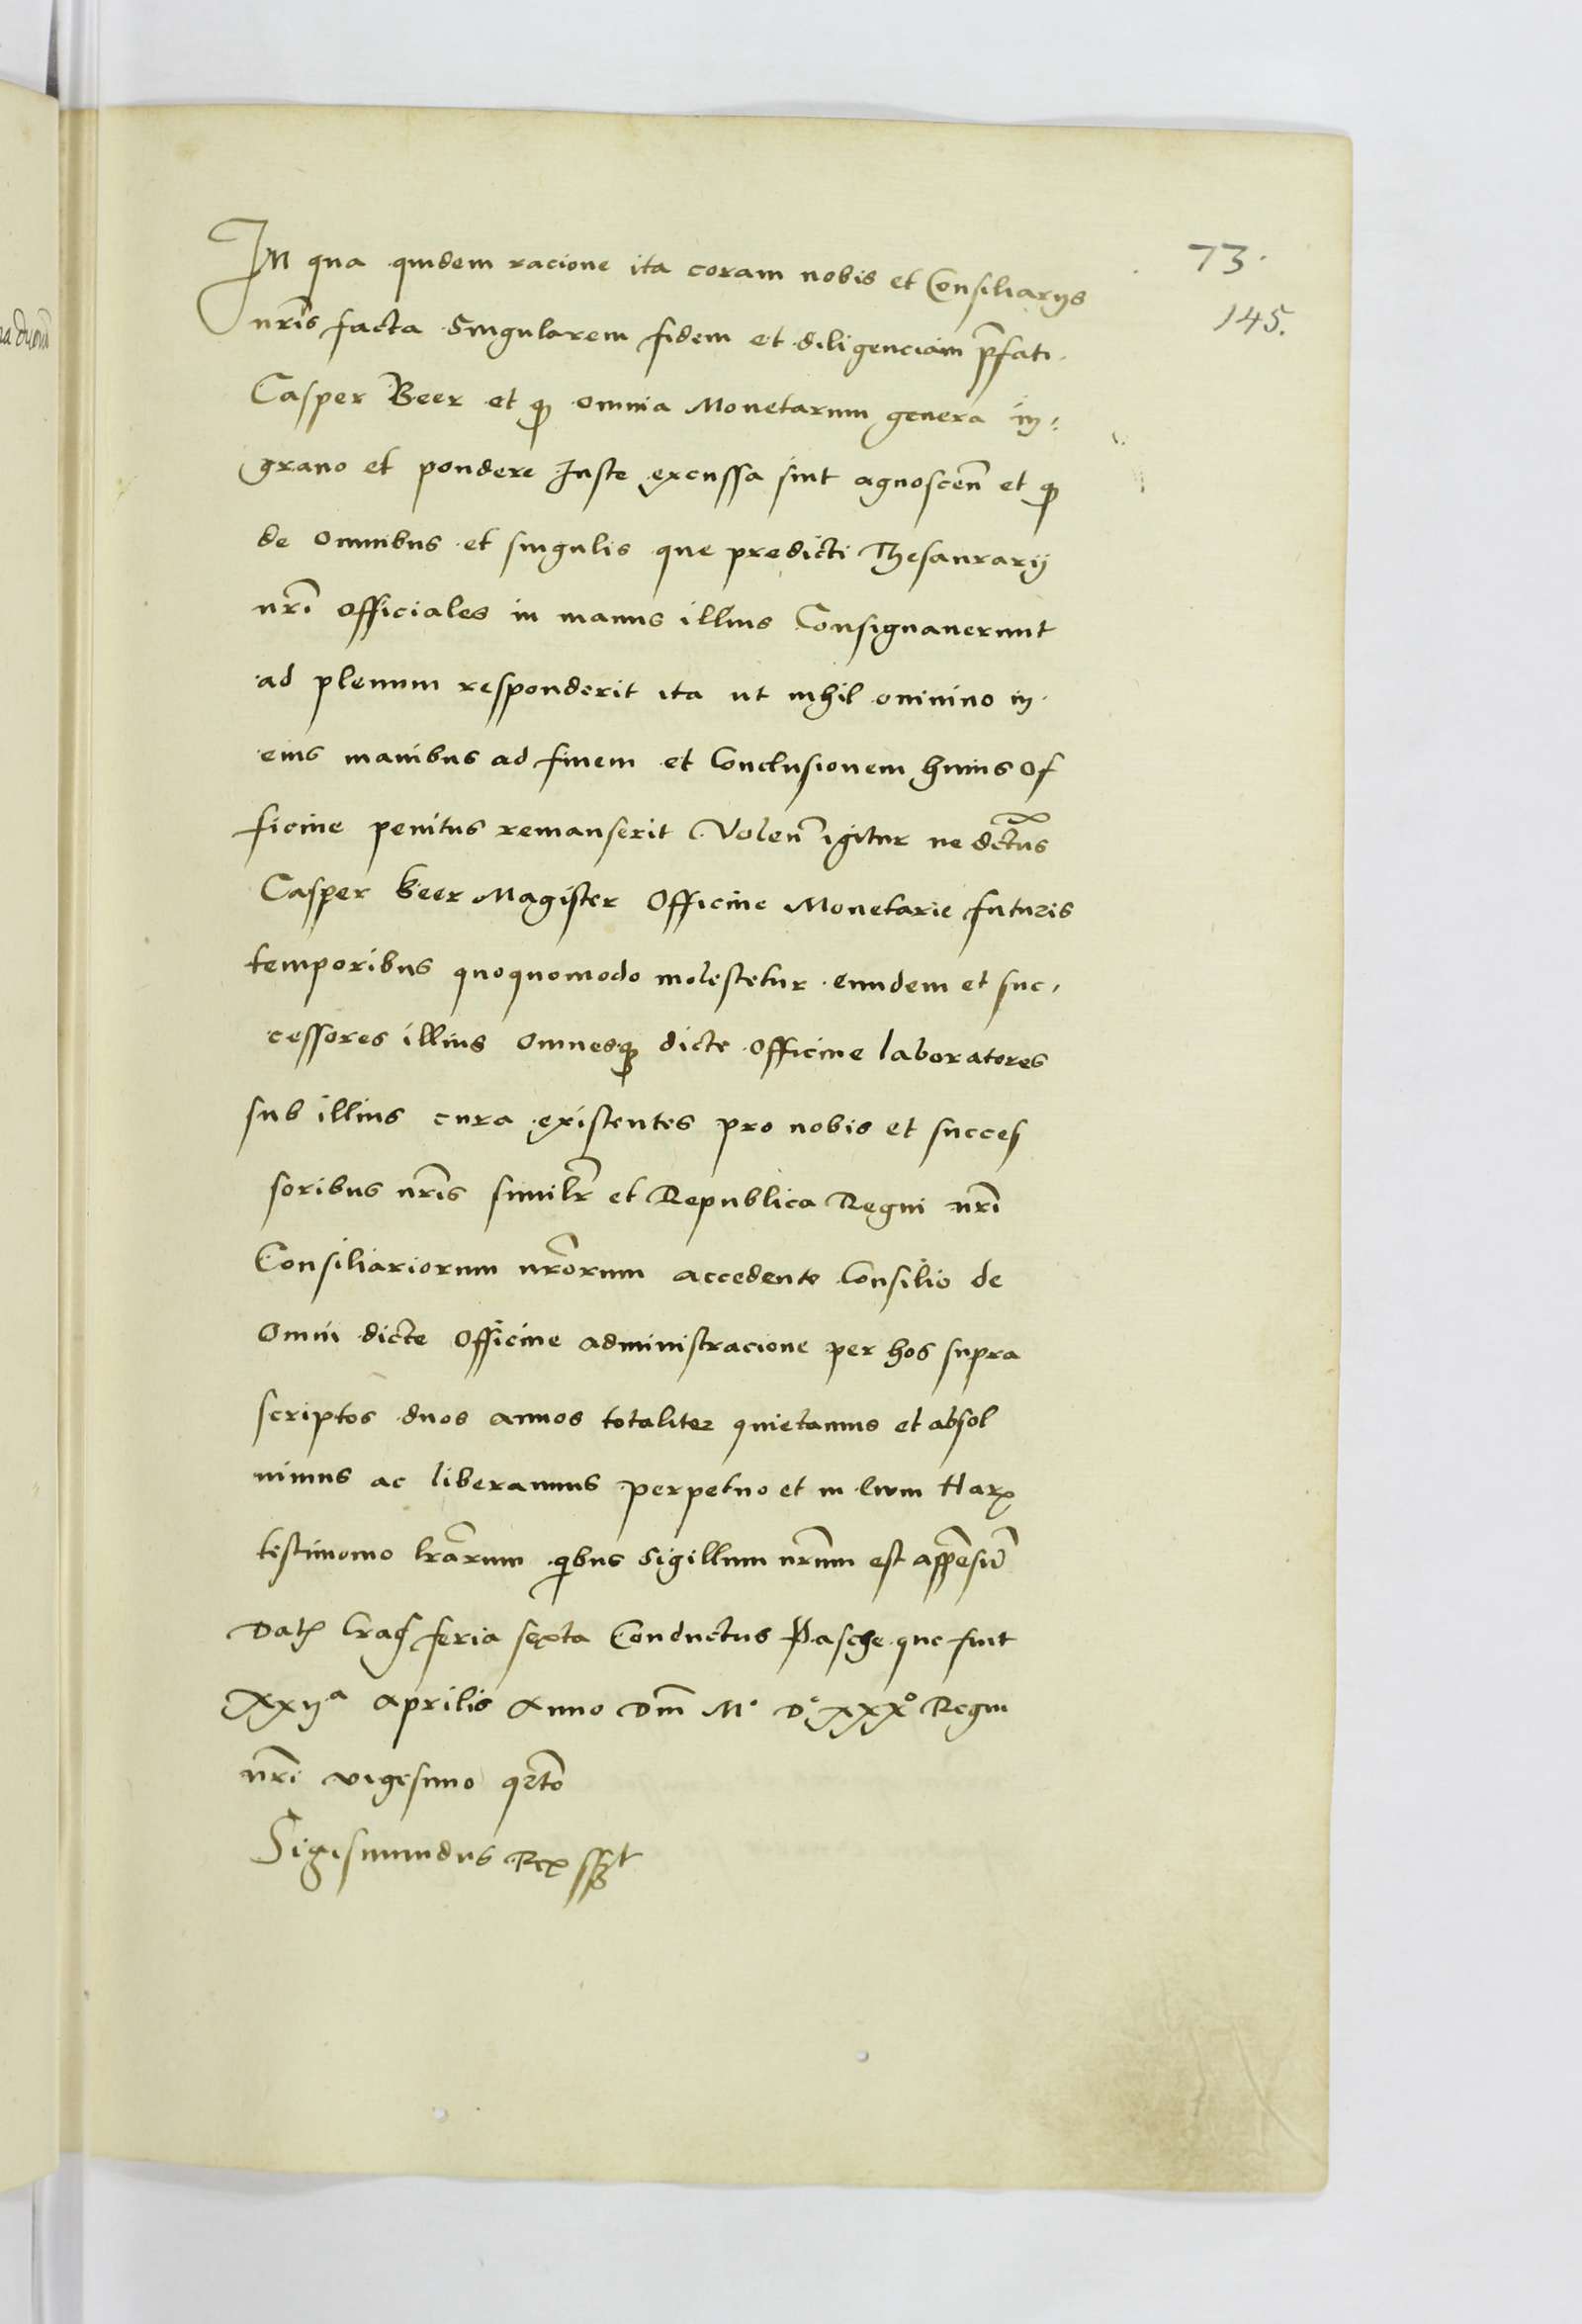 73.
145.
In qua quidem racione ita coram nobis et Consiliarijs
nr̃is facta Singularem fidem et diligenciam p̃fati
Casper Beer et qꝫ omnia Monetarum genera in:
grano et pondere Juste excussa sint agnoscen̄ et qꝫ
de omnibus et singulis que predicti Thesaurarij
nr̃i officiales in manus illius Consignauerunt
ad plenum responderit ita ut nihil omnino in
eius manibus ad finem et Conclusionem huius of
ficine penitus remanserit Volen̄ igitur ne dctus̃
Casper Beer Magister Officine Monetarie futuris
temporibus quoquomodo molestetur eundem et suc,
cessores illius omnesqꝫ dicte officine laboratores
sub illius cura existentes pro nobis et succes
soribus nr̃is similr̃ et Republica Regni nr̃i
Consiliariorum nr̃orum accedente Consilio de
Omni dicte Officine administracione per hos supra
scriptos duos annos totaliter quietamus et absol
uimus ac liberamus perpetuo et in euum Harꝝ
testimonio lr̃arum qibus Sigillum nr̃um est app̃esũ
Datꝫ Crac̃ feria sexta Conductus Pasche que fuit
xxijª Aprilis Anno Dm̃ Mº Dº xxxº Regni
nr̃i vigesimo qrto
Sigismundus Rex sszt